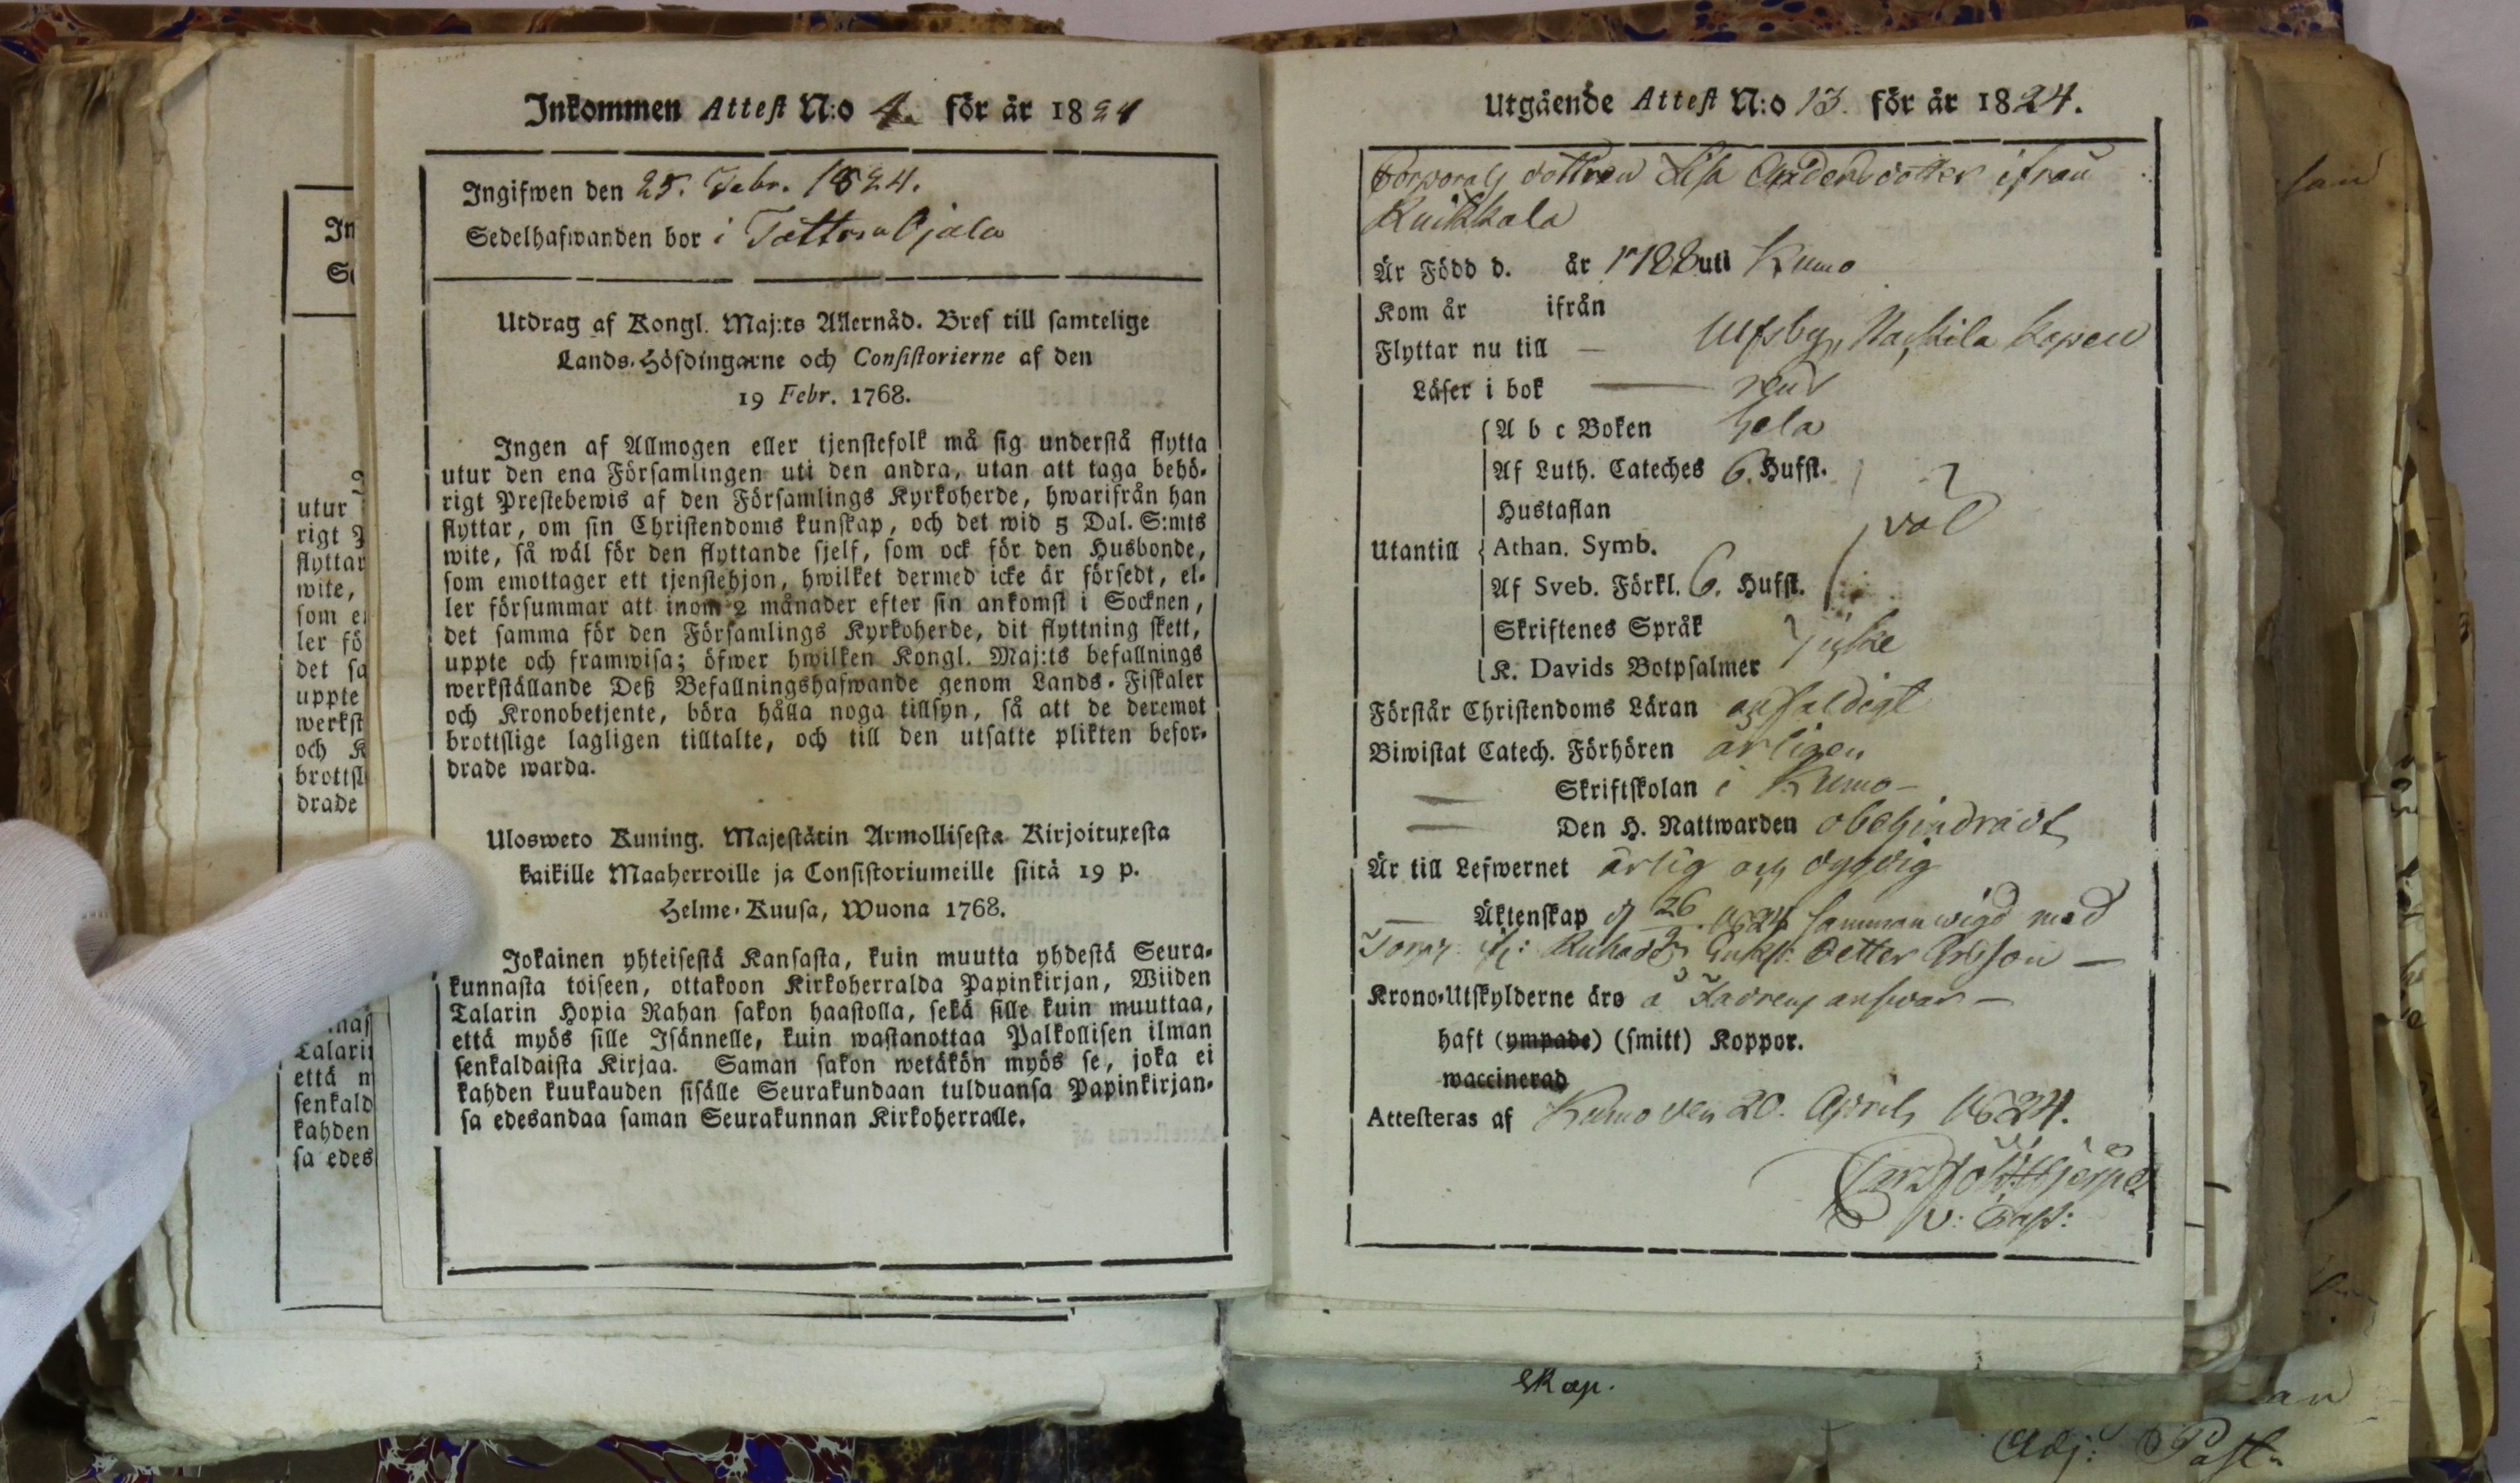 Inkommen Attest N:o 4. för år 1824
Ingifwen den 25. Febr. 1824.
Sedelhafwanden bor i Tattara Ojala
Utdrag af Kongl. Maj:ts Allernåd. Bref till samtelige
Lands-Höfdingarne och Consistorierne af den
19 Febr. 1768.
Ingen af Allmogen eller tjenstefolk må sig understå flytta
utur den ena Församlingen uti den andra, utan att taga behö-
rigt Prestebewis af den Församlings Kyrkoherde, hwarifrån han
flyttar, om sin Christendoms kunskap, och det wid 5 Dal. S:mts
wite, så wäl för den flyttande sjelf, som ock för den Husbonde,
som emottager ett tjenstehjon, hwilket dermed icke är försedt, el-
ler försummar att inom 2 månader efter sin ankomst i Socknen,
det samma för den Församlings Kyrkoherde, dit flyttning skett,
uppte och framwisa; öfwer hwilken Kongl. Maj:ts befallnings
werkställande Deß Befallningshafwande genom Lands-Fiskaler
och Kronobetjente, böra hålla noga tillsyn, så att de deremot
brottslige lagligen tilltalte, och till den utsatte plikten befor-
drade warda.
Ulosweto Kuning. Majestätin Armollisesta Kirjoituxesta
kaikille Maaherroille ja Consistoriumeille siitä 19 p.
Helme-Kuusa, Wuona 1768.
Jokainen yhteisestä Kansasta, kuin muutta yhdestä Seura-
kunnasta toiseen, ottakoon Kirkoherralda Papinkirjan, Wiiden
Talarin Hopia Rahan sakon haastolla, sekä sille kuin muuttaa,
että myös sille Isännelle, kuin wastanottaa Palkollisen ilman
senkaldaista Kirjaa. Saman sakon wetäkön myös se, joka ei
kahden kuukauden sisälle Seurakundaan tulduansa Papinkirjan-
sa edesandaa saman Seurakunnan Kirkoherralle.
In
S
utur
rigt
flyttar
wite,
som e
ler fö
det sa
uppte
werkst
och K
brottsl
drade
Talari
että m
senkald
kahden
sa edes
Utgående Attest N:o 13. för år 1824.
Corporals dottren Lisa Andersdotter ifrån
Kuikkala
Är Född d. år 1788 uti Kumo
Kom år ifrån
Flyttar nu till — Ulfsby, Kapell
Läser i bok — ren
A b c Boken hela
Af Luth. Cateches 6. Hufst.
Hustaflan
Utantill Athan. Symb. väl
Af Sveb. Förkl. 6. Hufst.
Skriftenes Språk
K. Davids Botpsalmer
Förstår Christendoms Läran enfaldigt
Biwistat Catech. Förhören årligen
— Skriftskolan i Kumo —
— Den H. Nattwarden obehindradt
Är till Lefwernet ärlig och dygdig
— Äktenskap d 26/3 1824 samman wigd med
Enkl. Petter —
Krono-Utskylderne äro å Fadrens answar —
haft (ympade) (smitt) Koppor.
waccinerad
Attesteras af Kumo den 20. April 1824.
v: Past:
skap.
Adj: Past: